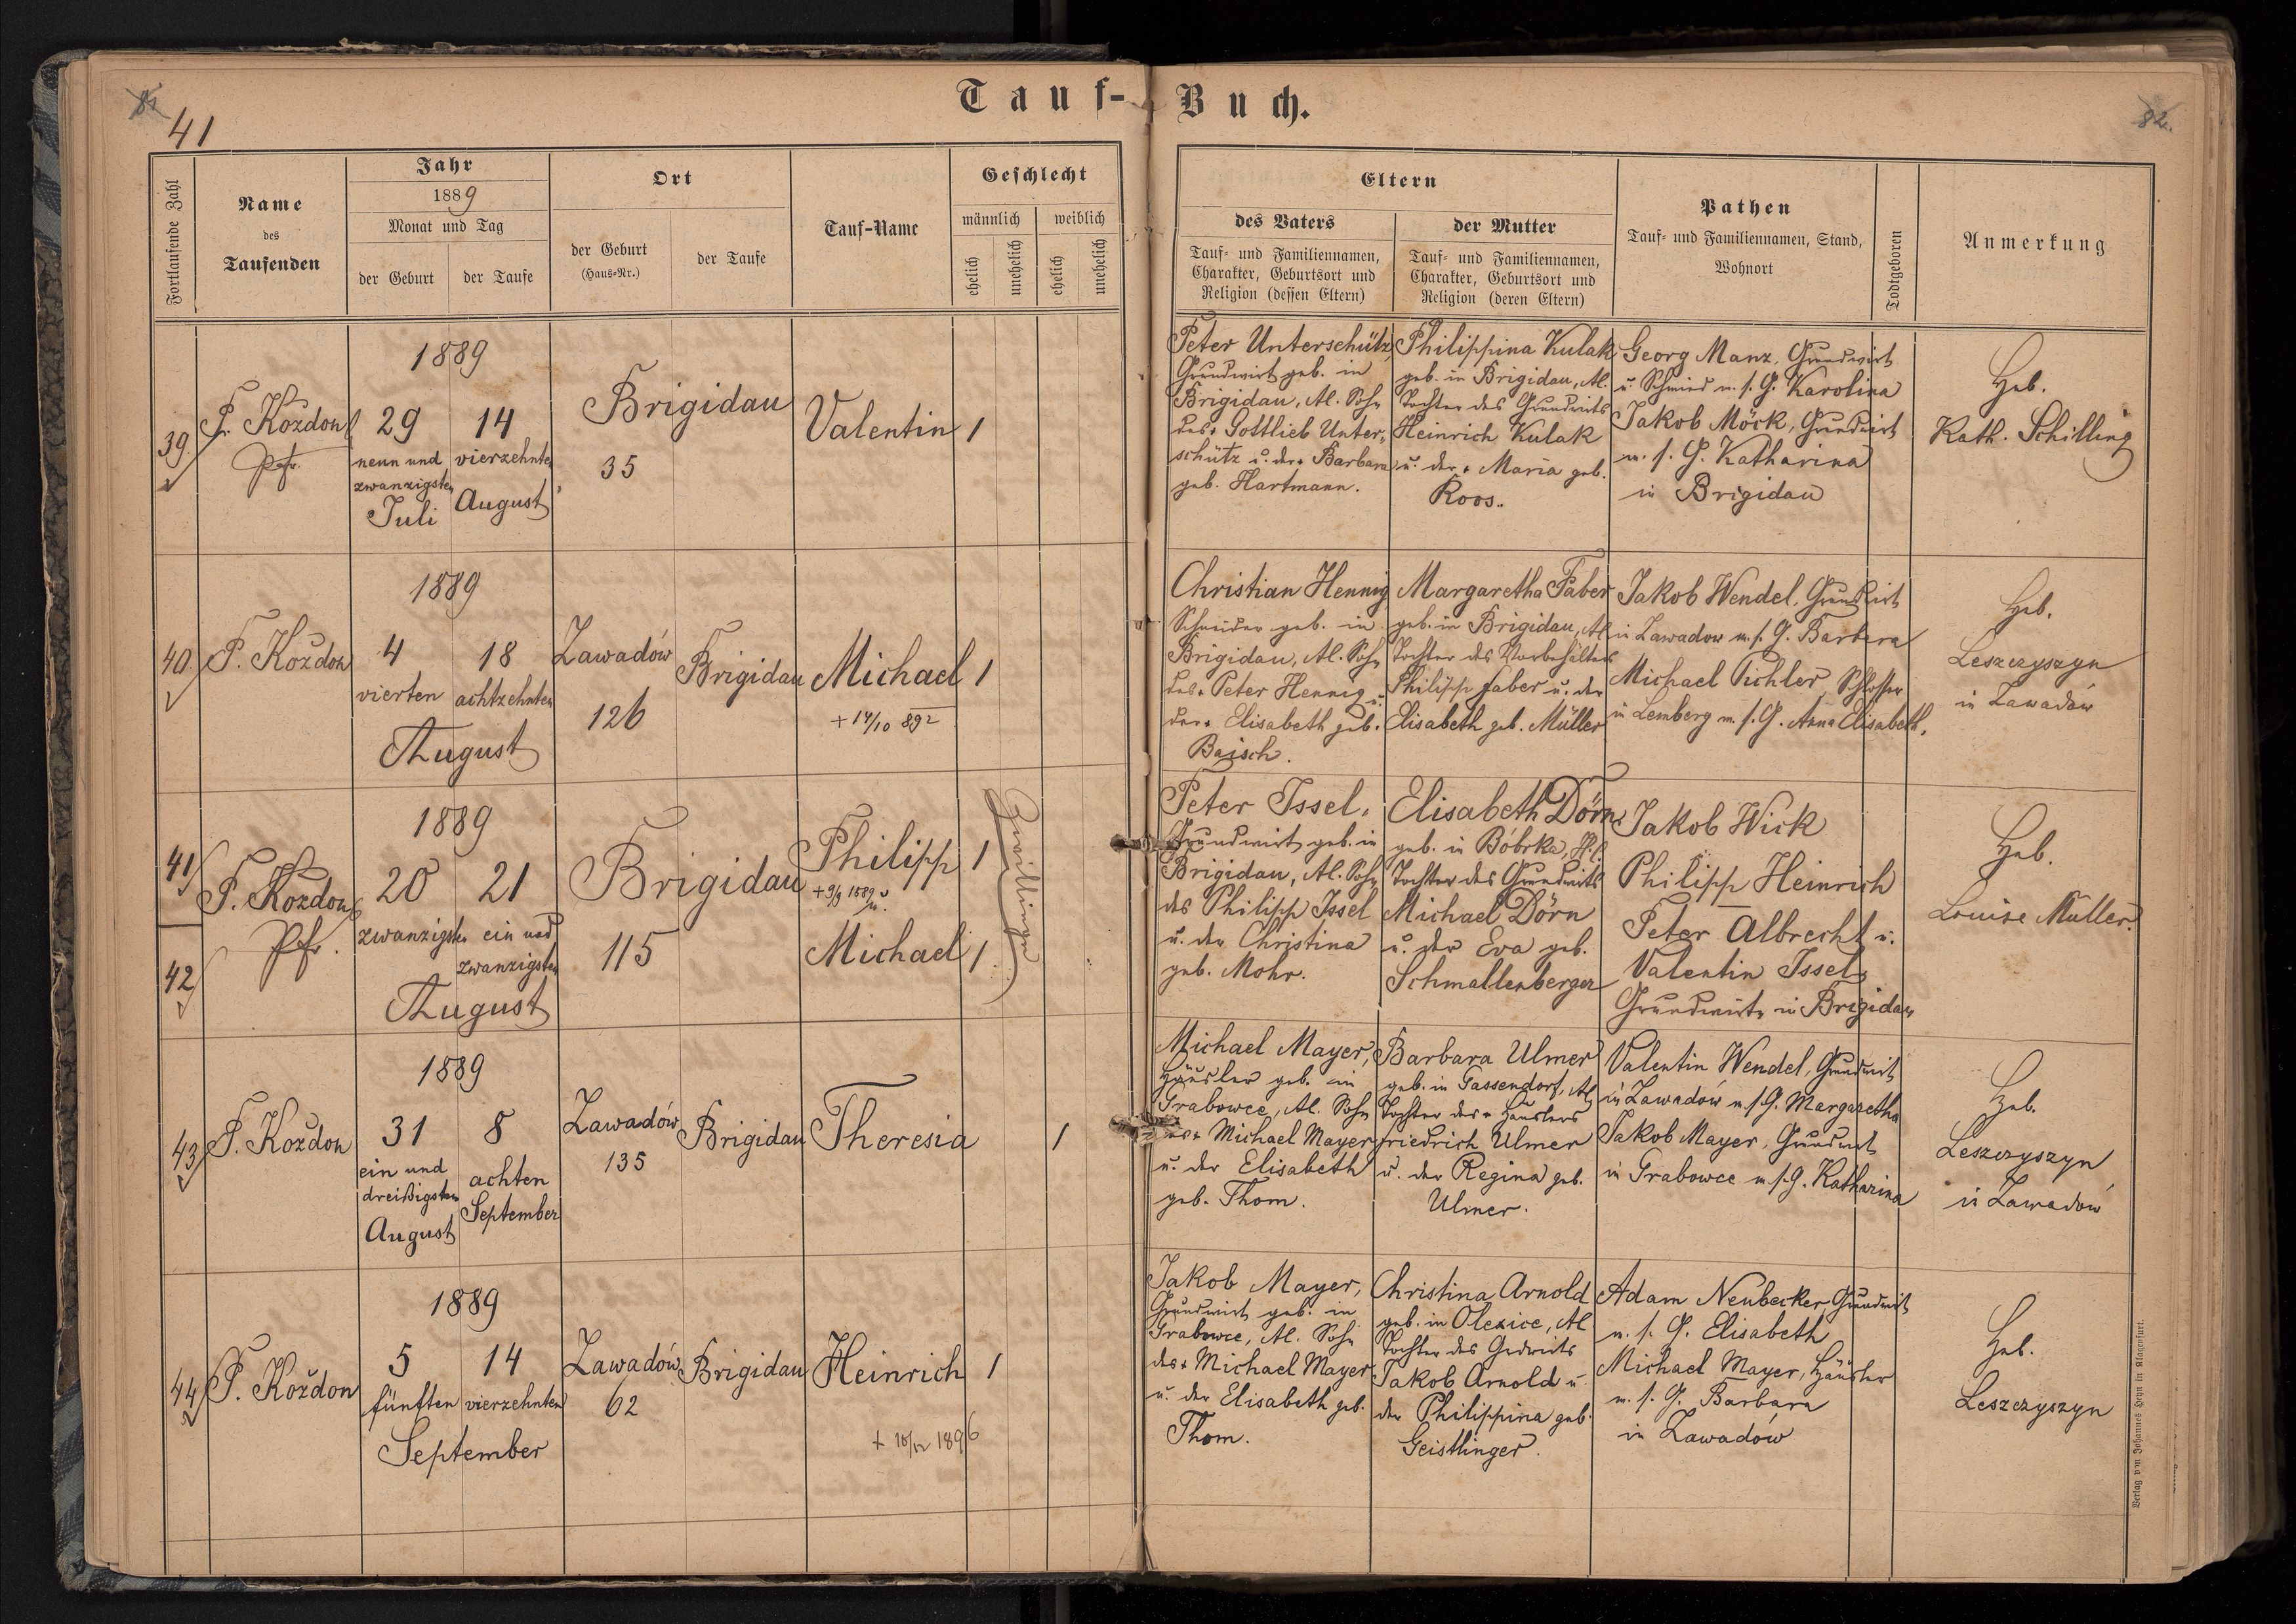 81
41
Tauf-Buch.
82.
Fortlaufende Zahl
Name
des
Taufenden
Jahr
1889
Monat und Tag
der Geburt
der Taufe
Ort
der Geburt
(Haus-Nr.)
der Taufe
Tauf-Name
Geschlecht
männlich
weiblich
ehelich
unehelich
ehelich
unehelich
Eltern
des Vaters
Tauf- und Familiennamen,
Charakter, Geburtsort und
Religion (dessen Eltern)
der Mutter
Tauf- und Familiennamen,
Charakter, Geburtsort und
Religion (deren Eltern)
Pathen
Tauf- und Familiennamen, Stand,
Wohnort
Todtgeboren
Anmerkung
39.
F. Koždon
Pfr.
1889
29
neun und
zwanzigsten
Juli
14
vierzehnten
August
Brigidau
35
Valentin
1
Peter Unterschütz
Grundwirt geb. in
Brigidau, Al. Sohn
des + Gottlieb Unter-
schütz u. der + Barbara
geb. Hartmann.
Philippina Kulak
geb. in Brigidau, Al.
Tochter des Grundwirts
Heinrich Kulak
u. der + Maria geb.
Roos.
Georg Manz, Grundwirt
u. Schmied m. s. G. Karolina
Jakob Möck, Grundwirt
m. s. G. Katharina
in Brigidau
Heb.
Kath. Schilling
40.
F. Koždon
1889
4
vierten
18
achtzehnten
August
Zawadów
126
Brigidau
Michael
+ 14/10 892
1
Christian Hennig
Schneider geb. in
Brigidau, Al. Sohn
des + Peter Hennig u.
der + Elisabeth geb.
Baisch.
Margaretha Faber
geb. in Brigidau, Al.
Tochter des Vorbehälters
Philipp Faber u. der
Elisabeth geb. Müller
Jakob Wendel, Grundwirt
in Zawadow m. s. G. Barbara
Michael Pichler, Schlosser
in Lemberg m. s. G. Anna Elisabeth.
Heb.
Leszczyszyn
in Zawadów
41
42
F. Koždon
Pfr.
1889
20
zwanzigsten
21
ein und
zwanzigsten
August
Brigidau
115
Philipp
+ 9/9 1889
Michael
1
1
Zwillinge
Peter Issel,
Grundwirt geb. in
Brigidau, Al. Sohn
des Philipp Issel
u. der Christina
geb. Mohr.
Elisabeth Dörn
geb. in Bóbrka,
Tochter des Grundwirts
Michael Dörn
u. der Eva geb.
Schmallenberger
Jakob Wick
Philipp Heinrich
Peter Albrecht u.
Valentin Issel,
Grundwirte in Brigidau
Heb.
Louise Müller.
43
F. Koždon
1889
31
ein und
dreißigsten
August
8
achten
September
Zawadów
135
Brigidau
Theresia
1
Michael Mayer,
Häusler geb. in
Grabowce, Al. Sohn
des + Michael Mayer
u. der Elisabeth
geb. Thom.
Barbara Ulmer
geb. in Gassendorf, Al.
Tochter des + Häuslers
Friedrich Ulmer
u. der Regina geb.
Ulmer.
Valentin Wendel, Grundwirt
in Zawadów m. s. G. Margaretha
Jakob Mayer, Grundwirt
in Grabowce m. s. G. Katharina
Heb.
Leszczyszyn
in Zawadów
44
F. Koždon
1889
5
fünften
14
vierzehnten
September
Zawadów
62
Brigidau
Heinrich
+ 18/12 1896
1
Jakob Mayer,
Grundwirt geb. in
Grabowce, Al. Sohn
des + Michael Mayer
u. der Elisabeth geb.
Thom.
Christina Arnold
geb. in Olexice, Al.
Tochter des Grdwirts
Jakob Arnold u.
der Philippina geb.
Geistlinger.
Adam Neubecker, Grundwirt
m. s. G. Elisabeth
Michael Mayer, Häusler
m. s. G. Barbara
in Zawadów
Heb.
Leszczyszyn
Verlag von Johannes Heyn in Klagenfurt.